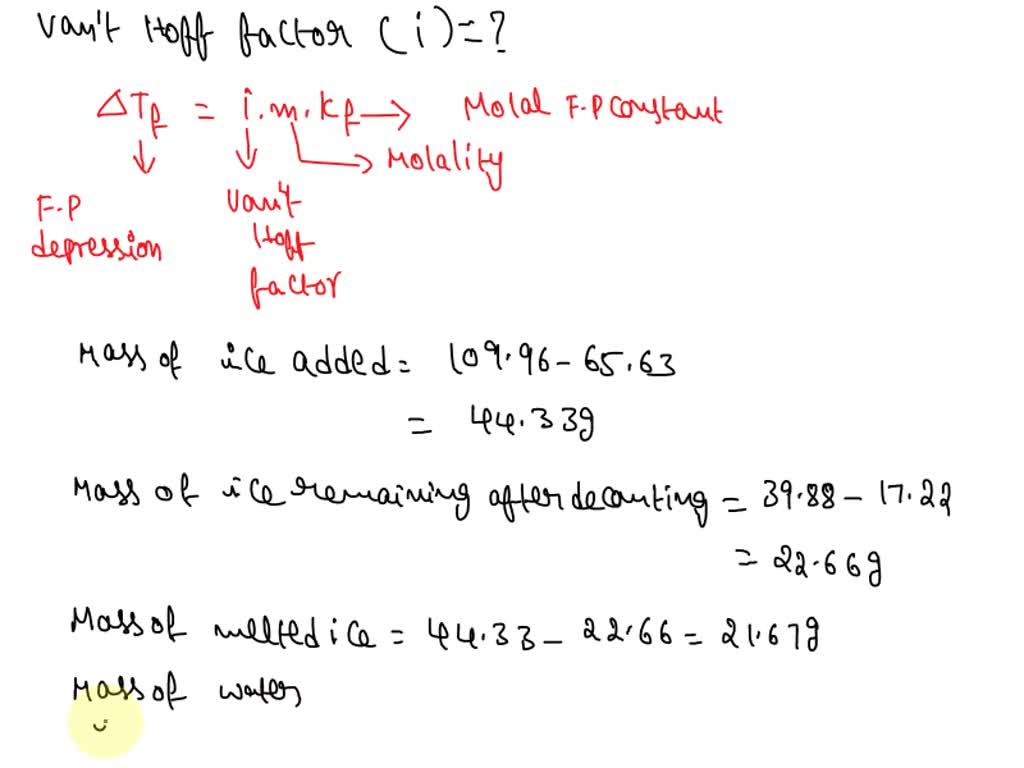 Van't Hoff factor (i)=?
ΔTf = i.m.kf → Molal F.P constant
→ Molality
F.P depression
Van't Hoff factor
Mass of ice added = 109.96 - 65.63
= 44.33g
Mass of ice remaining after decanting = 39.88 - 17.22
= 22.66g
Mass of melted ice = 44.33 - 22.66 = 21.67g
Mass of water